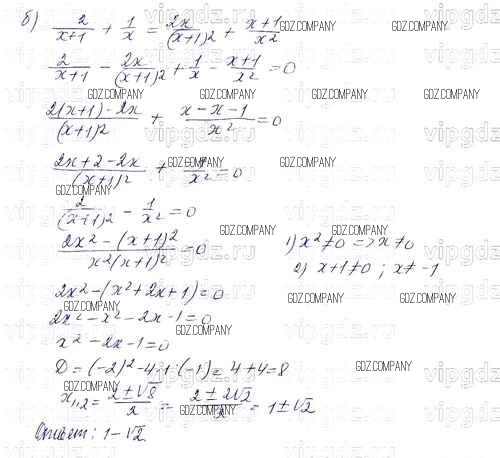 б) 2/(x+1) + 1/x = 2x/(x+1)² + (x+1)/x²
2/(x+1) - 2x/(x+1)² + 1/x - (x+1)/x² = 0
(2(x+1)-2x)/(x+1)² + (x-x-1)/x² = 0
(2x+2-2x)/(x+1)² + -1/x² = 0
2/(x+1)² - 1/x² = 0
(2x²-(x+1)²)/(x²(x+1)²) = 0
1) x²≠0 => x≠0
2) x+1≠0 ; x≠-1
2x²-(x²+2x+1)=0
2x²-x²-2x-1=0
x²-2x-1=0
D=(-2)²-4·1·(-1)=4+4=8
x₁,₂ = (2±√8)/2 = (2±2√2)/2 = 1±√2
Ответ: 1-√2
GDZ.COMPANY
vipgdz.ru